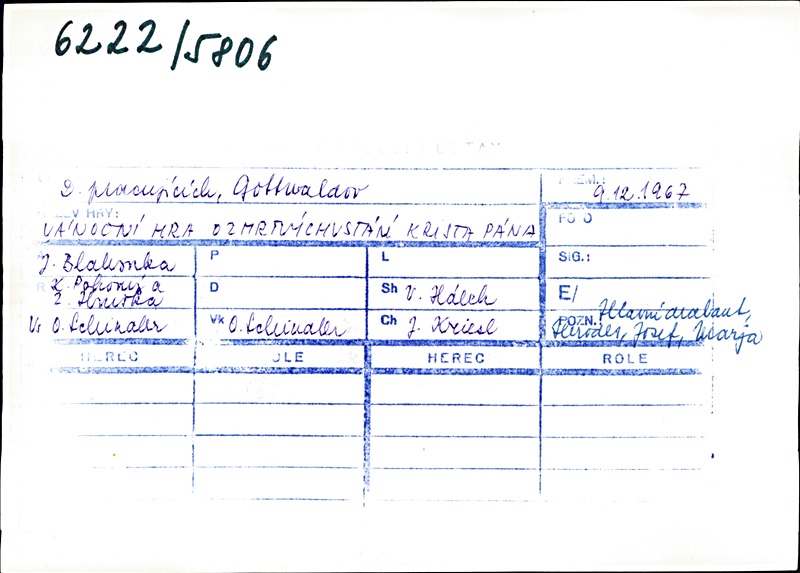 6222/5806
D. pracujících, Gottwaldov
9.12.1967
HRY:
VÁNOČNÍ HRA O ZMRTVÝCHVSTÁNÍ KRISTA PÁNA
FOTO
J. Blahynka
P
L
SIG.:
K. Pokorný a
Z. Hruška
D
Sh V. Hálek
E/
Vr O. Schindler
Vk O. Schindler
Ch J. Kriesl
POZN. Hlavní drabant,
Herodes, Josef, Marja
HEREC
ROLE
HEREC
ROLE